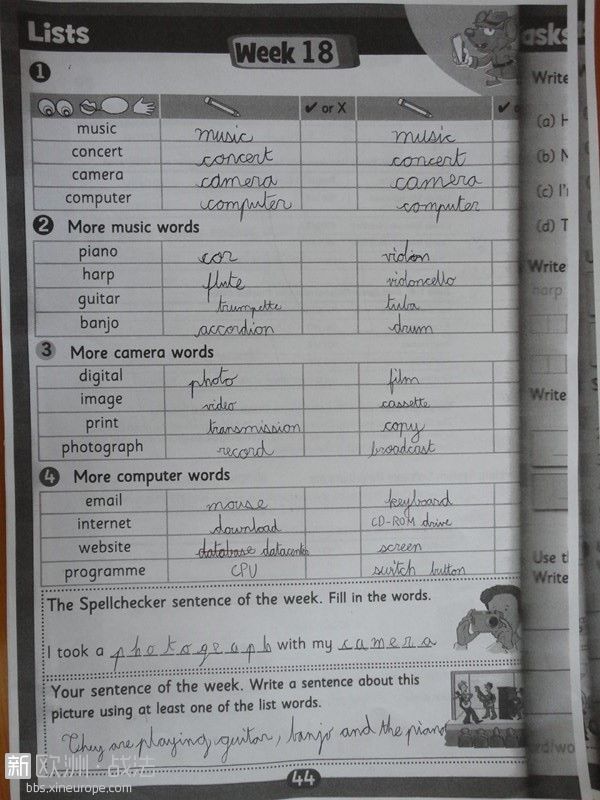 Lists
Week 18
asks
1
✔ or X
music music music
concert concert concert
camera camera camera
computer computer computer
2 More music words
piano cor violon
harp flute violoncello
guitar trumpette tuba
banjo accordion drum
3 More camera words
digital photo film
image video cassette
print transmission copy
photograph record broadcast
4 More computer words
email mouse keyboard
internet download CD-ROM drive
website database datacenter screen
programme CPU switch button
The Spellchecker sentence of the week. Fill in the words.
I took a photograph with my camera
Your sentence of the week. Write a sentence about this
picture using at least one of the list words.
They are playing guitar, banjo and the piano
44
Write
(a) H
(b) N
(c) I'
(d) T
Write
harp
Write
Use t
Write
rd/wo
新欧洲·战法
bbs.xineurope.com